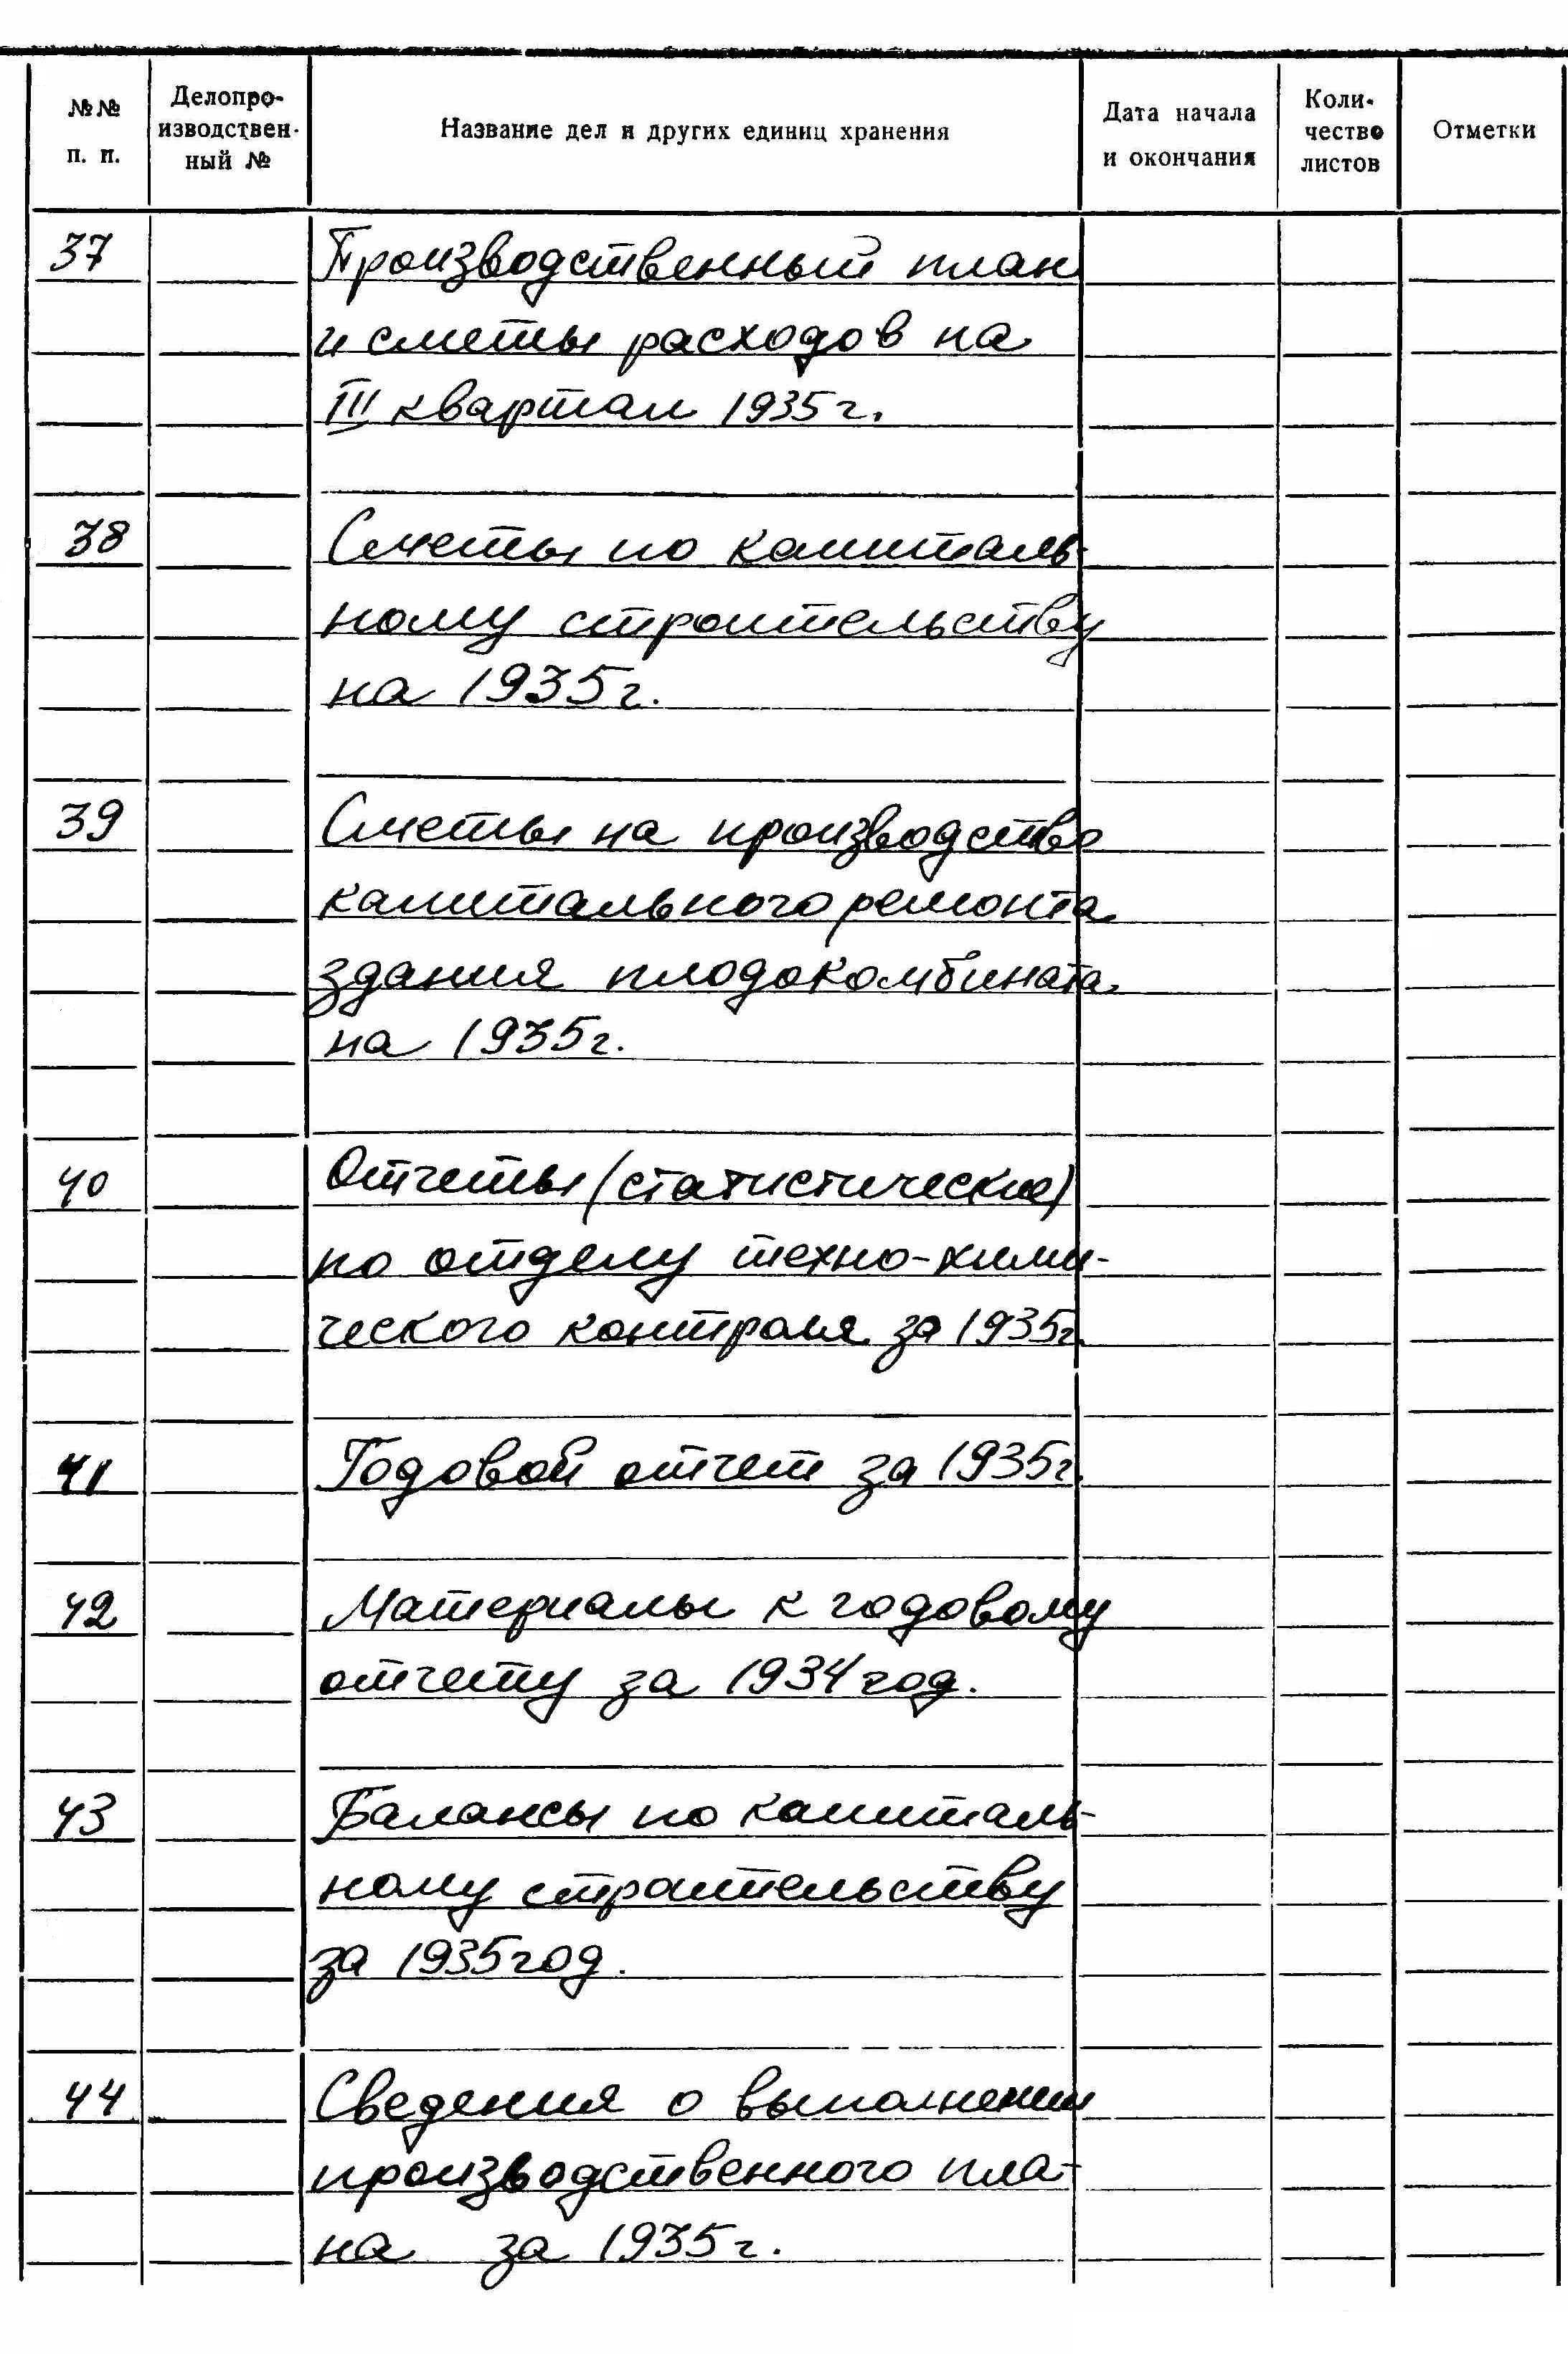 №№ п. п.
Делопро-
изводствен-
ный №
Название дел и других единиц хранения
Дата начала
и окончания
Коли-
чество
листов
Отметки
37 Производственный план
и сметы расходов на
III квартал 1935 г.
38 Сметы по капиталь-
ному строительству
на 1935 г.
39 Сметы на производство
капитального ремонта
здания плодокомбината
на 1935 г.
40 Отчеты (статистические)
по отделу техно-хими-
ческого контроля за 1935 г.
41 Годовой отчет за 1935 г.
42 Материалы к годовому
отчету за 1934 год.
43 Балансы по капиталь-
ному строительству
за 1935 год.
44 Сведения о выполнении
производственного пла-
на за 1935 г.